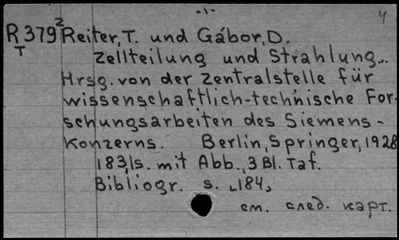 -1-
4
R 379² Reiter, T. und Gábor, D.
T
Zellteilung und Strahlung...
Hrsg. von der Zentralstelle für
wissenschaftlich-technische For-
schungsarbeiten des Siemens-
Konzerns. Berlin, Springer, 1928
183,1s. mit Abb., 3 Bl. Taf.
Bibliogr. s. [184]
см. след. карт.